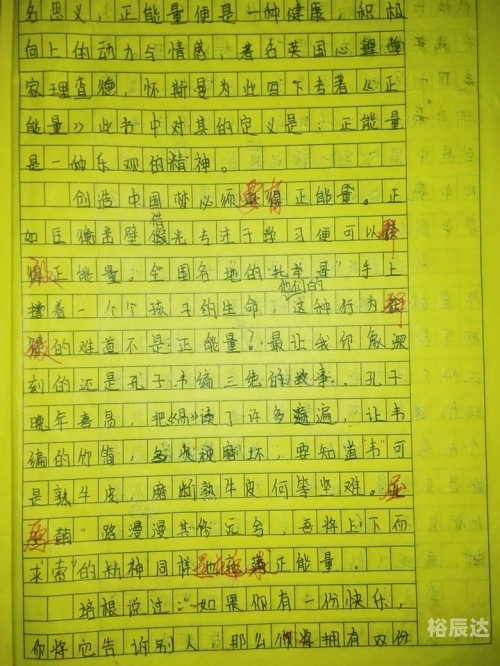 名思义，正能量便是一种健康，积极
向上的动力与情感，著名英国心理学
家理查德·怀斯曼为此写下专著《正
能量》此书中对其的定义是：正能量
是一种乐观的精神。
创造中国梦必须要有正能量。正
如匡衡凿壁借光专注于学习便可以
正能量。全国各地的"托举哥"手上
撞着一个个孩子的生命，他们的这种行为
的难道不是正能量？最让我印象深
刻的还是孔子韦编三绝的故事。孔子
晚年喜易，把《易》读了许多遍，让韦
编的竹简，多次被磨坏，要知道"韦"可
是熟牛皮，磨断熟牛皮何等坚难。屈
原"路漫漫其修远兮，吾将上下而
求索"的精神同样正能量。
培根说过："如果你有一份快乐，
你将它告诉别人，那么你将拥有双份
裕辰达